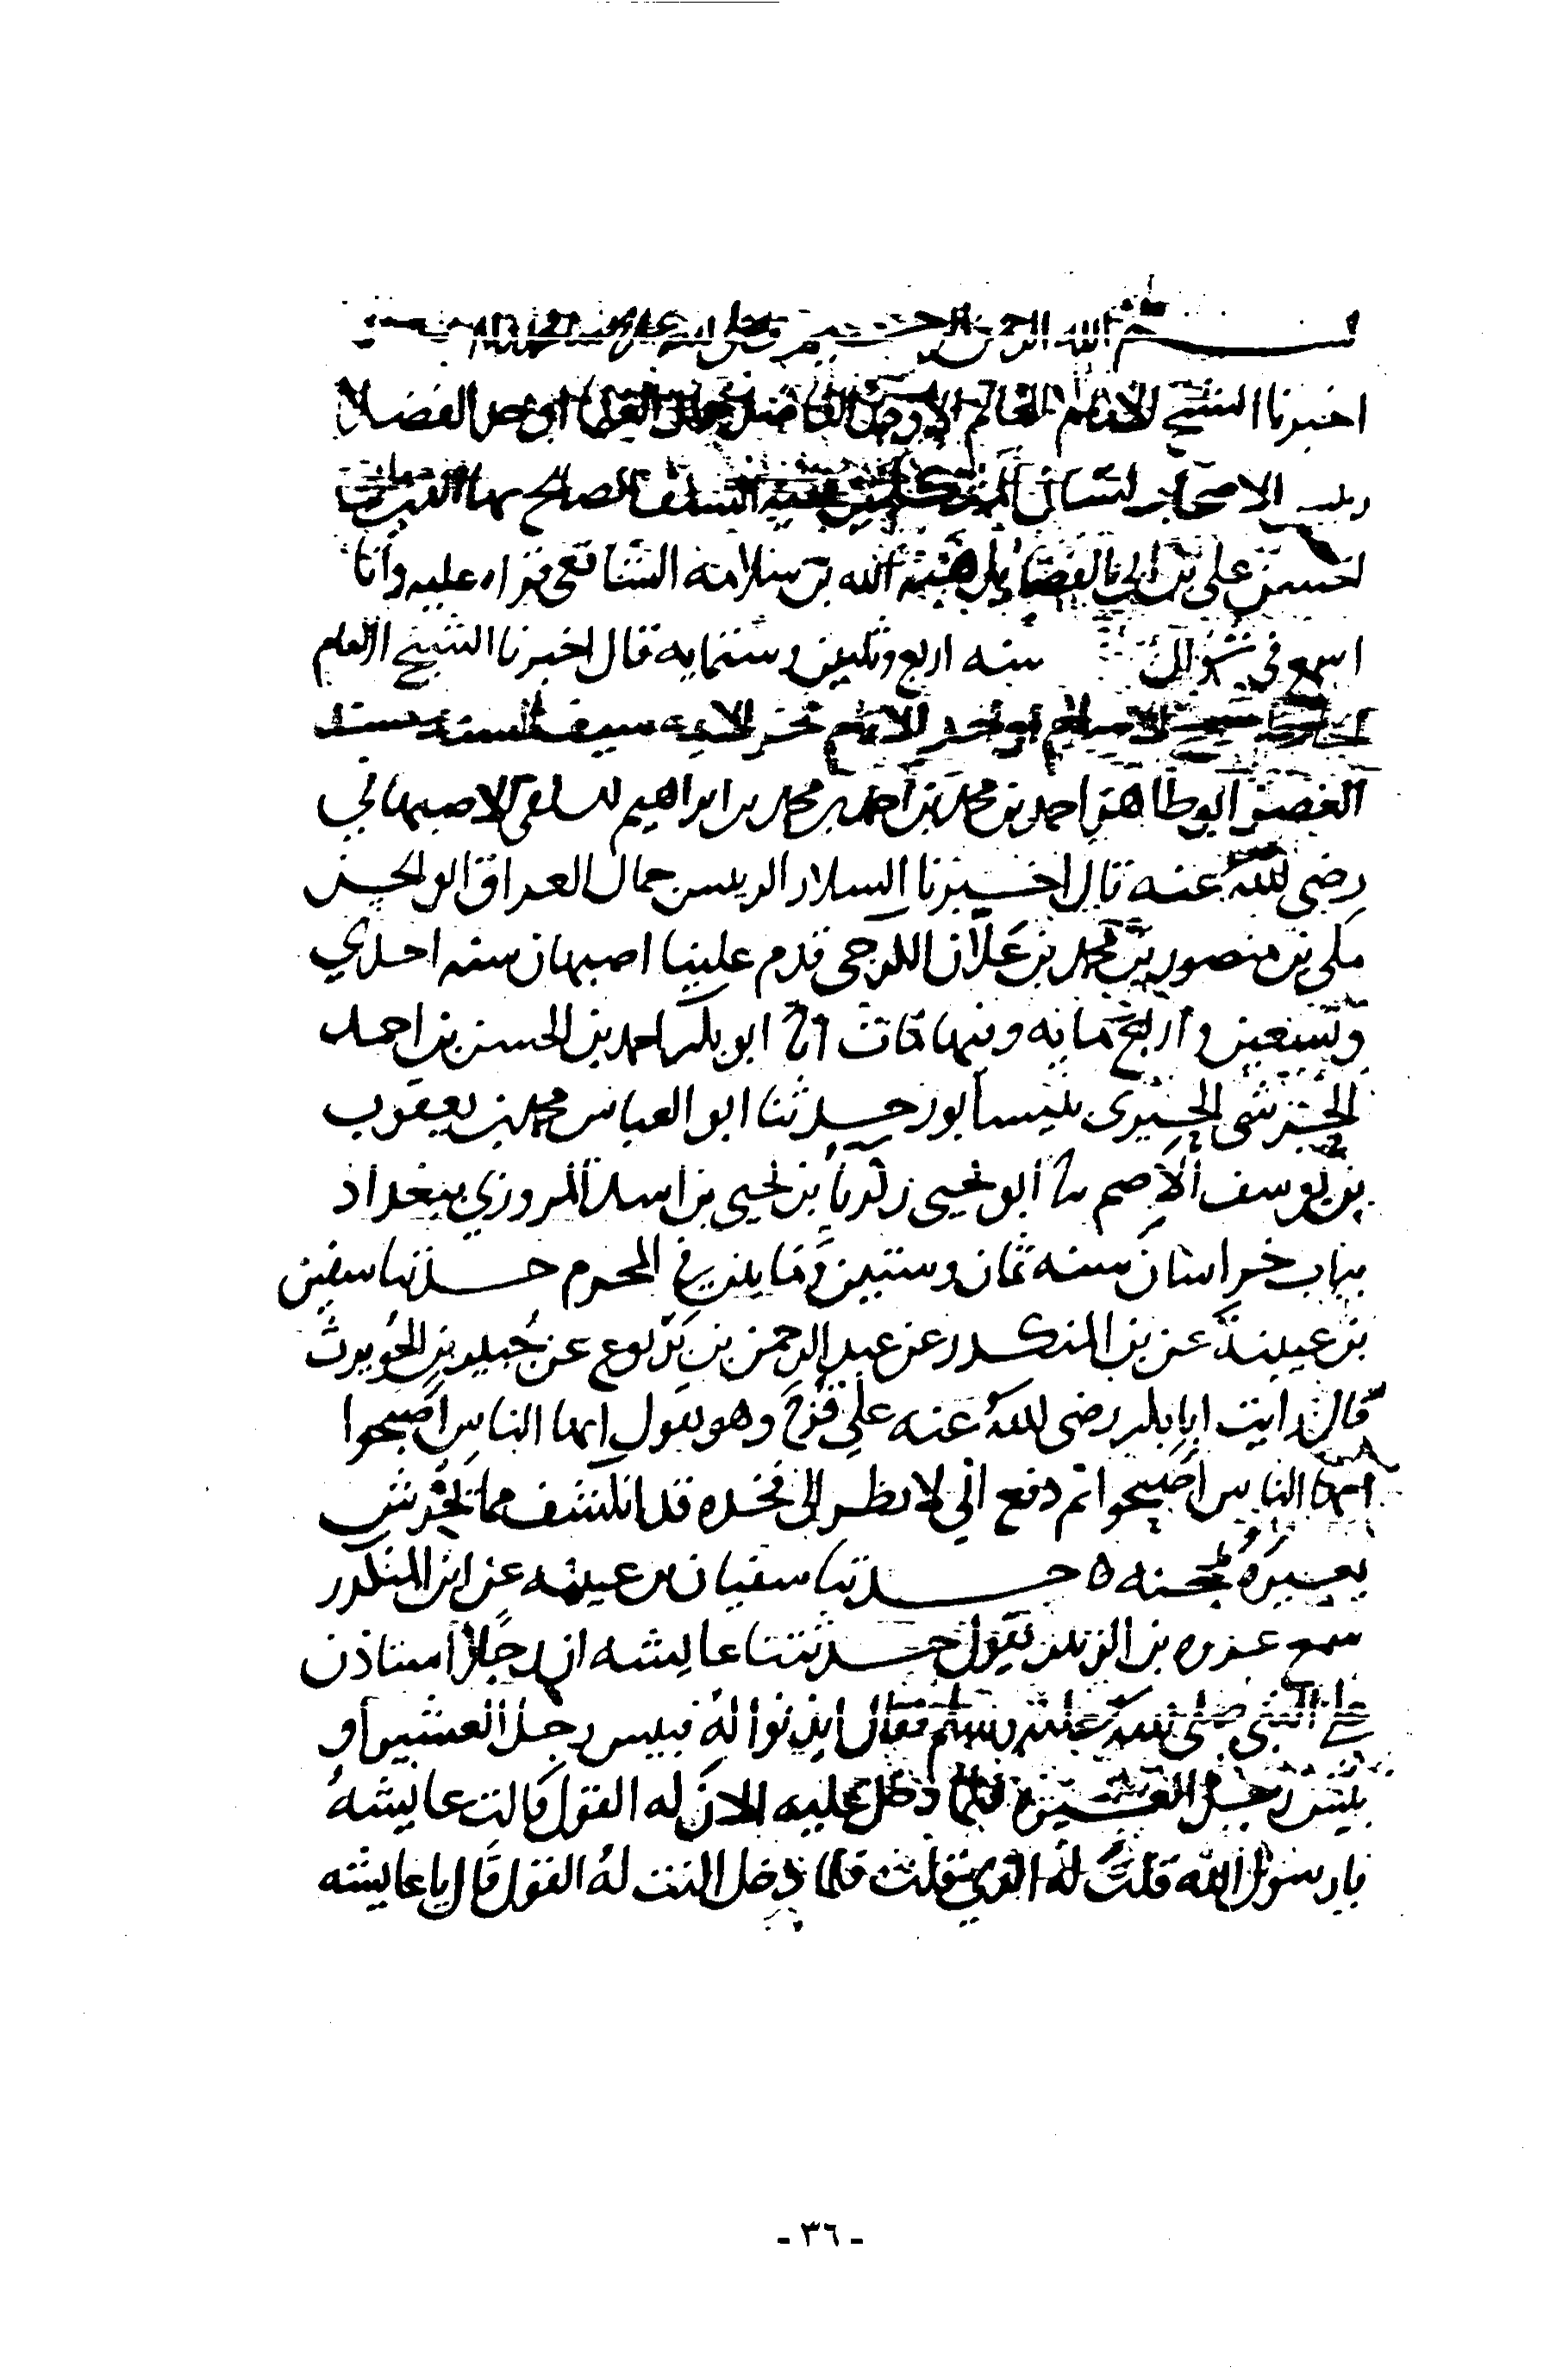 بسم الله الرحمن الرحيم
اخبرنا الشيخ الامام العالم الاوحد الفاضل اوحد الفضلا
رئيس الاصحاب لسان المتكلمين بقية السلف الصالح بها الدين
الحسن علي بن ابي الفضايل هبة الله بن سلامه الشافعي قراه عليه وانا
اسمع في شوال سنه اربع وثلثين وستمايه قال اخبرنا الشيخ الامام
الحافظ شيخ الاسلام فخر الايمه سيف السنه
ابو طاهر احمد بن محمد بن احمد بن محمد بن ابراهيم السلفي الاصبهاني
رضي الله عنه قال اخبرنا السلار الرييس جمال العراق ابو الحسن
مكي بن منصور بن محمد بن علان الكرجي قدم علينا اصبهان سنه احدي
وتسعين واربع مايه وفيها مات انا ابو بكر احمد بن الحسن بن احمد
الحرشي الحيري بنيسابور حدثنا ابو العباس محمد بن يعقوب
بن يوسف الاصم نا ابو يحيى زكريا بن يحيى بن اسد المروزي ببغداد
بباب خراسان سنه ثمان وستين ومايتين في المحرم حدثنا سفين
بن عيينة عن بن المنكدر عن عبد الرحمن بن يربوع عن جبير بن الحويرث
قال رايت ابا بكر رضي الله عنه علي قزح وهو يقول ايها الناس اصبحوا
ايها الناس اصبحوا ثم دفع اني لانظر الى فخذه قد انكشف مما يخرش
بعيره بمحجنه ه حدثنا سفيان بن عيينه عن ابن المنكدر
سمع عروه بن الزبير يقول حدثتنا عايشه ان رجلا استاذن
على النبي صلى الله عليه وسلم فقال ايذنوا له فبيس رجل العشير او
بيس رجل العشيره فلما دخل عليه الان له القول قالت عايشه
يا رسول الله قلت له الذي قلت فلما دخل النت له القول قال يا عايشه
- ٣٦ -